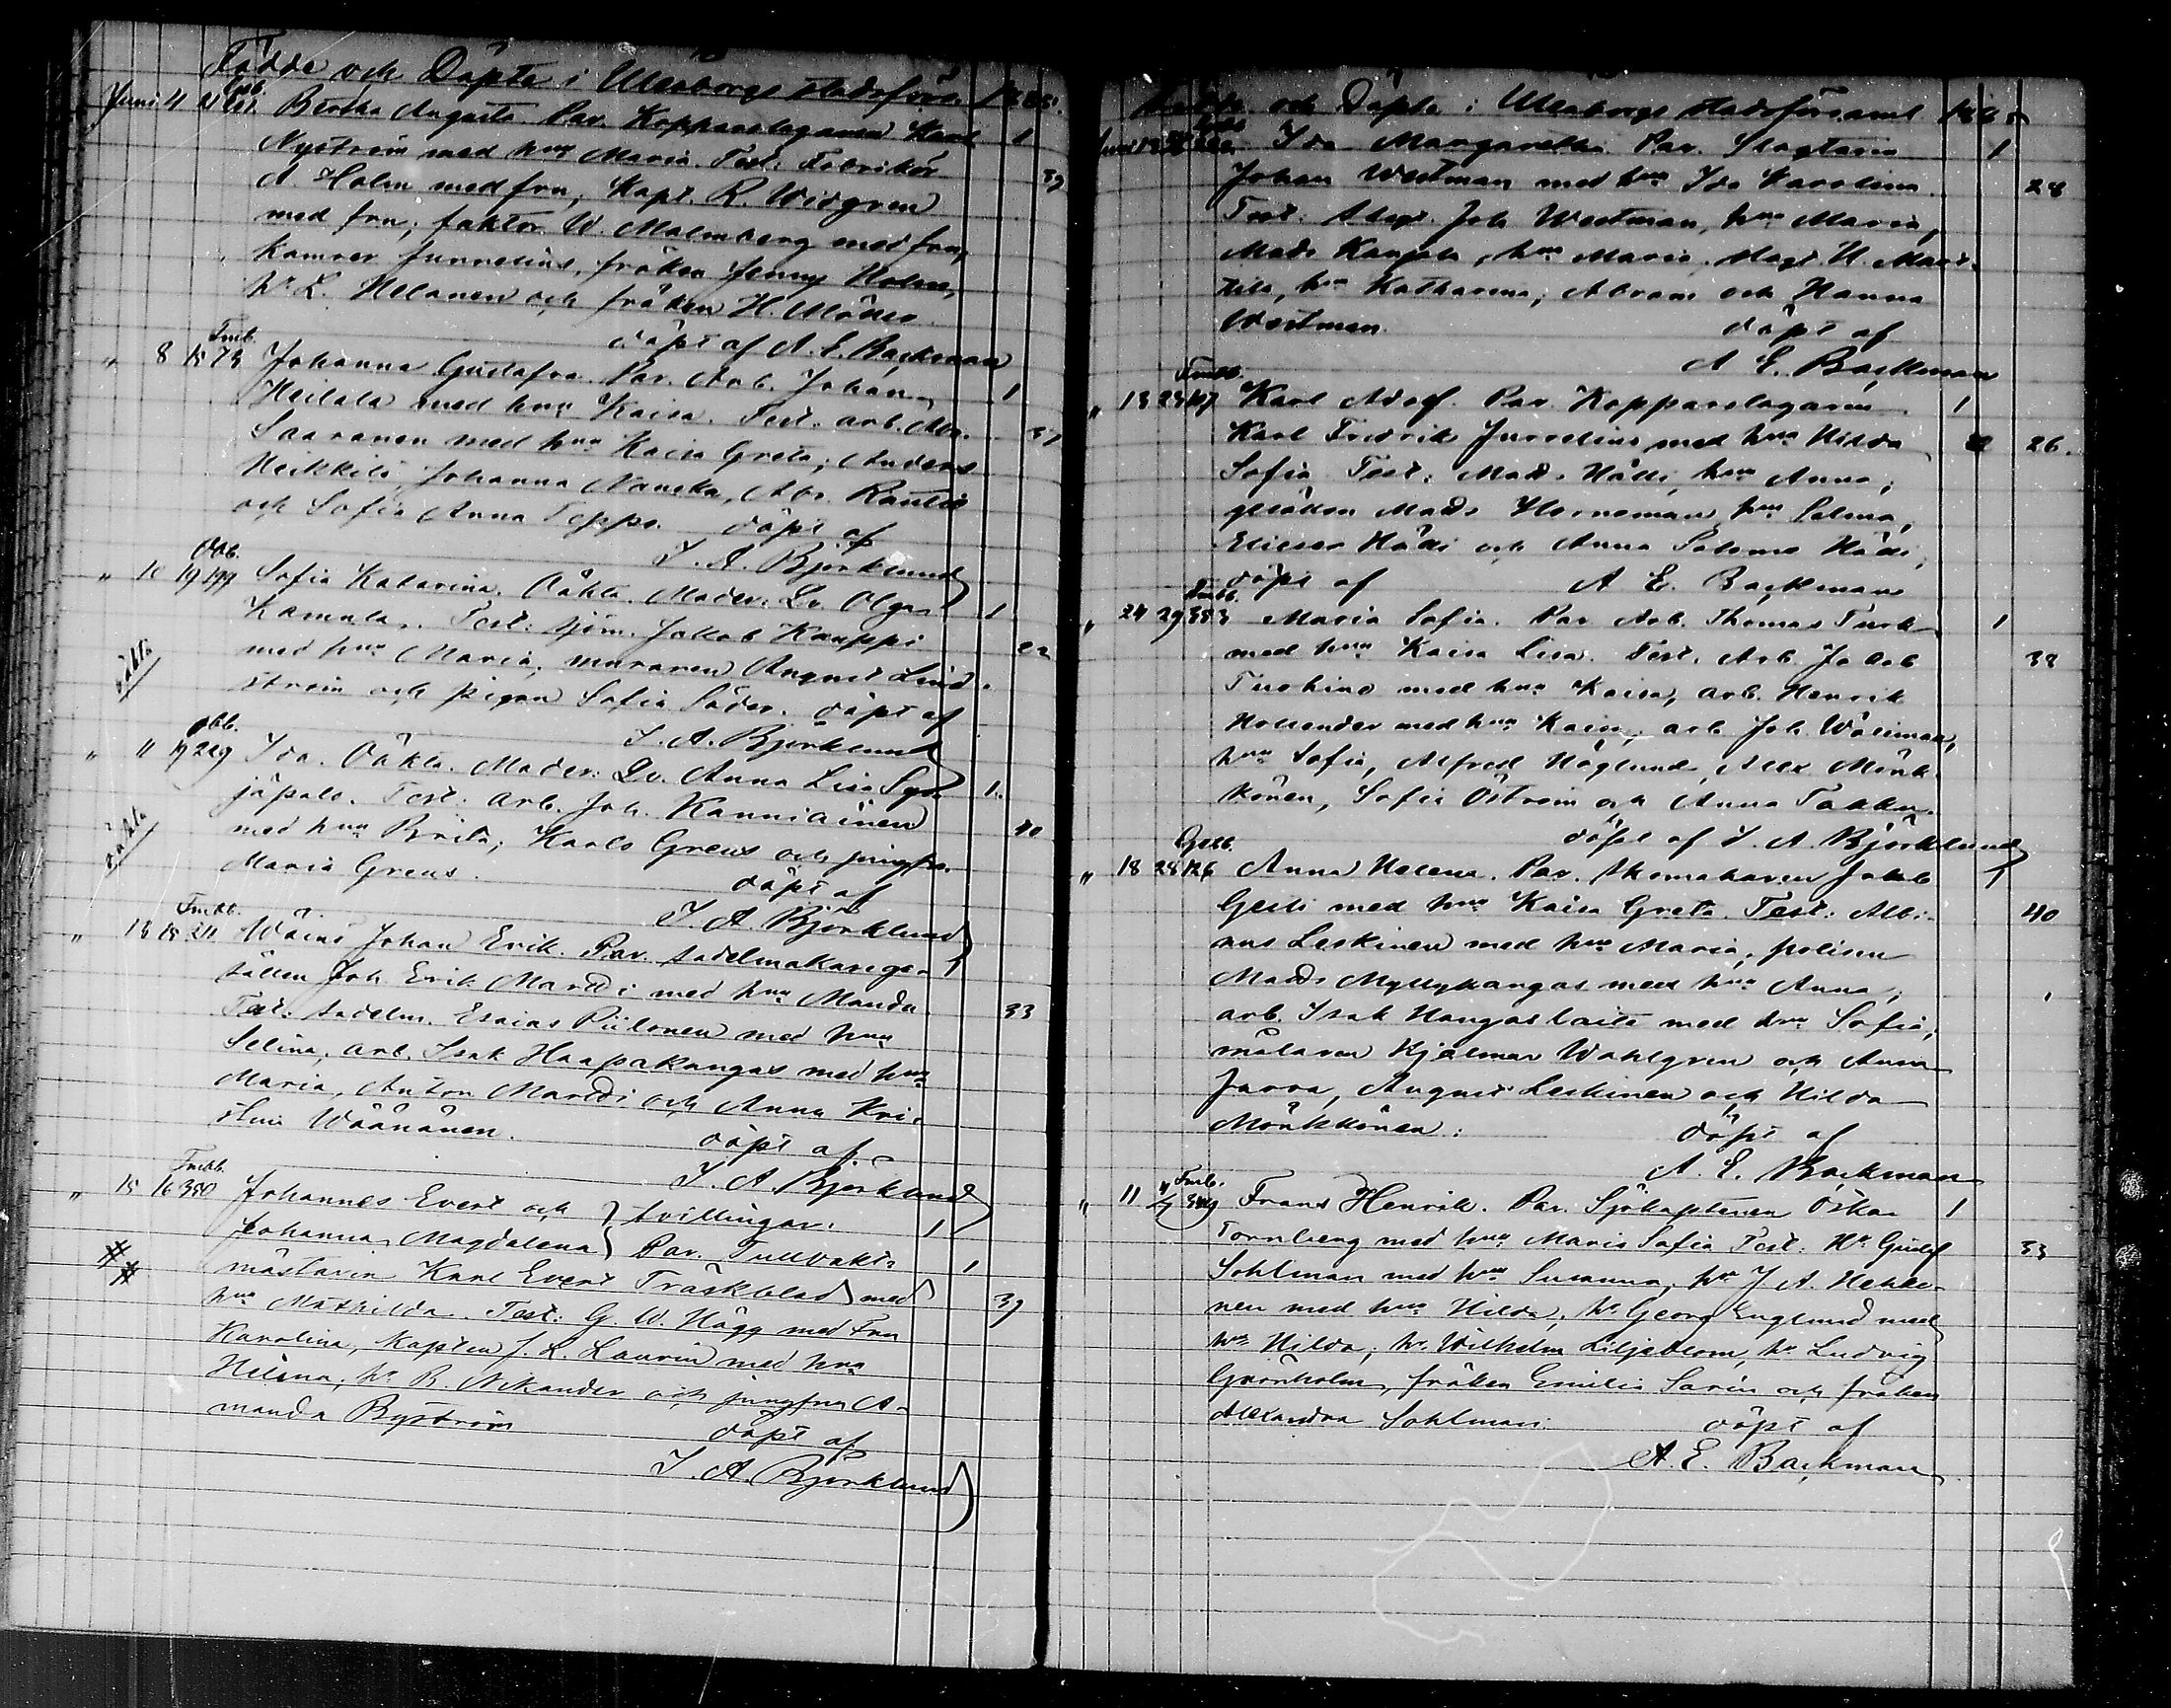 Födde och Döpte i Uleåborgs stadsförs. 1885.
Juni 4 21 Bertha Augusta Par. Kopparslagaren Karl 1
Nyström med hu Maria. Test: Fabrikör 39
A. Holm med fru, Kapt. R. Widgren
med fru; faktor W. Malmberg med fru,
Kamrer Junnelius, fröken Jenny Holm,
hr L. Helanen och fröken H. Möller
döpt af A. E. Backman
Fmb.
" 8 15 79 Johanna Gustafva Par. Arb. Johan 1
Heilala med hu Kaisa. Test. arb. Abr. 37
Saaranen med hu Kaisa Greta; Anders
Heikkilä, Johanna Nauska, Abr. Rautio
och Sofia Anna Teppo. döpt af
J. A. Björklund
Obb.
" 10 19 199 Sofia Katarina. Oäkta. Moder: Lv. Olga 1
Kamula. Test: sjöm. Jakob Kauppi 22
med hu Maria; muraren August Lind-
ström och pigan Sofia Söder. döpt af
oäkta
J. A. Björklund
Obb.
" 11 19 229 Ida. Oäkta. Moder: Lv. Anna Lisa Syr- 1.
jäpalo. Test: arb. Joh. Kanniainen 40
med hu Brita; Karls Greus och jungfru
Maria Greus. döpt af
oäkta
J. A. Björklund
Fmbb.
" 13 15 211 Wäinö Johan Erik. Par. sadelmakarege- 1
sällen Joh. Erik Marttdi med hu Manda 33
Test. sadelm. Esaias Piilonen med hu
Selina; arb. Isak Haapakangas med hu
Maria, Anton Marttdi och Anna Kri-
stina Wäänänen. döpt af
J. A. Björklund
Fmbb.
" 15 16 350 Johannes Evert och } tvillingar. 1
Johanna Magdalena } Par. Tullvakt- 1
mästaren Karl Evert Träskblad med 39
hu Mathilda. Test: G. W. Hägg med Fru
Karolina, Kapten J. L. Laurin med hu
Helena; hr B. Nekander och jungfru A-
manda Byström döpt af
J. A. Björklund
och Döpte i Uleåborgs stadsförsaml
Ida Margaretha Par. Slagtaren 1
Johan Westman med hu Ida Karolina. 28
Test: Slagt. Joh Westman, hu Maria,
Mads Kanjala, hu Maria, slagt H. Mart-
tila, hu Katharina; Abram och Hanna
Westman. döpt af
A. E. Backman
Fmbb.
" 13 23 107 Karl Adolf. Par. Kopparslagaren 1
Karl Fredrik Jurvelius med hu Hilda 26.
Sofia Test: Mads Hälli, hu Anna;
gesällen Mads Horneman, hu Selma,
Elieser Hädi och Anna Salomo Hädi;
döpt af A. E. Backman
Fmbb.
" 24 29 353 Maria Sofia. Par Arb. Thomas Turk 1
med hu Kaisa Lisa. Test. Arb Jakob 38
Turkino med hu Kaisa, arb. Henrik
Hollender med hu Kaisa; arb Joh. Wälimaa,
hu Sofia, Alfred Höglund, Alex Mönk
könen, Sofia Öström och Anna Takku.
döpt af J. A. Björklund
" 18 28 126 Anna Helena. Par. skomakaren Jakob 1
Gesti med hu Kaisa Greta. Test: Albi- 40
nus Leskinen med hu Maria; polisen
Mads Myllykangas med hu Anna;
arb. Isak Hangaslaita med hu Sofia;
målaren Hjalmar Wahlgren och Anna
Juvva, August Leskinen och Hilda
Mönkkönen. döpt af
A. E. Backman
Fmb.
" 11 349 Frans Henrik. Par. Sjökaptenen Oskar 1
Tornberg med hu Maria Sofia Test: Hr Gustaf 33
Sohlman med hu Susanna; hr J A. Hehle-
nen med hu Hilda; hr Georg Englund med
hu Hilda; hr Wilhelm Liljeblom, hr Ludvig
Grönholm, fröken Emilia Sarin och fröken
Alexandra Sohlman. döpt af
A. E. Backman